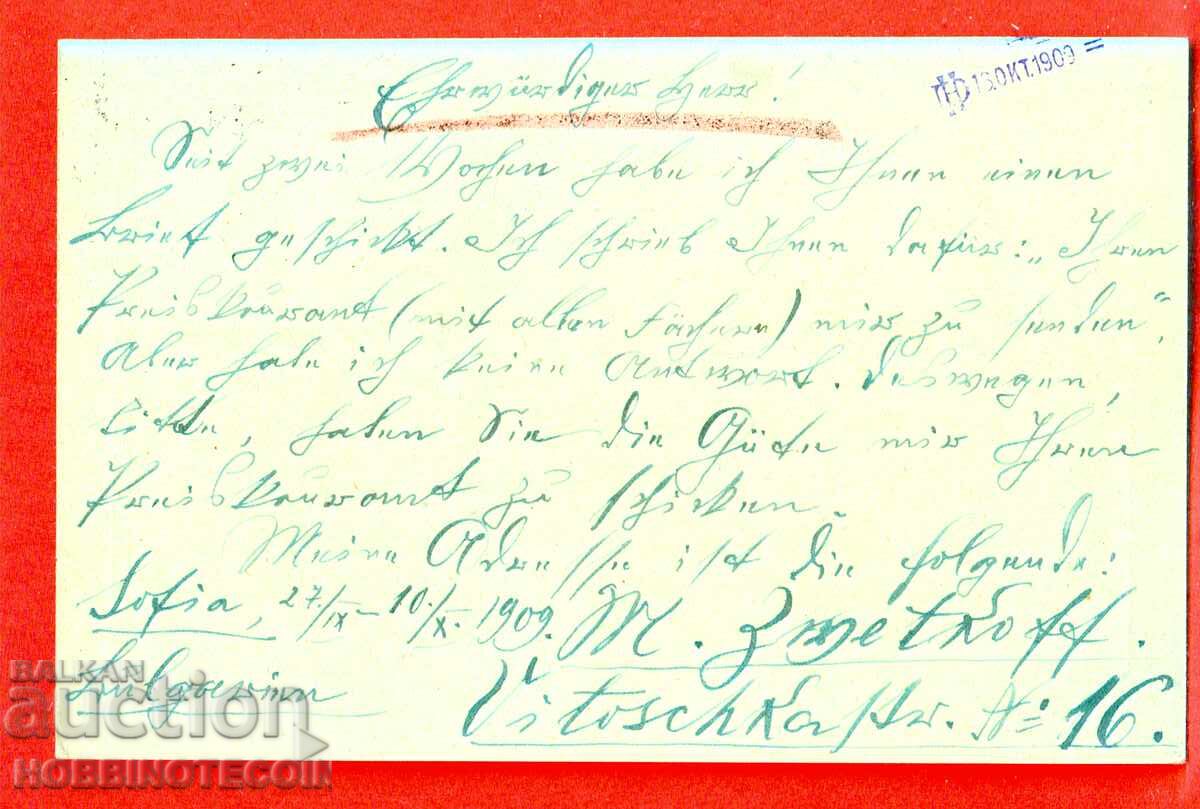 13 OKT. 1909 =
Ehrwürdiger Herr!
Seit zwei Wochen habe ich Ihnen einen
Brief geschickt. Ich schrieb Ihnen dafür: „Ihren
Preiskourant (mit allen Fächern) mir zu senden“,
Aber habe ich keine Antwort. Deswegen,
bitte, haben Sie die Güte mir Ihren
Preiskourant zu schicken.
Meine Adresse ist die folgende:
Sofia, 27./IX – 10./X. 1909. M. Zwetkoff.
Bulgarien Vitoschka str. №: 16.
BALKAN
auction
HOBBINOTECOIN